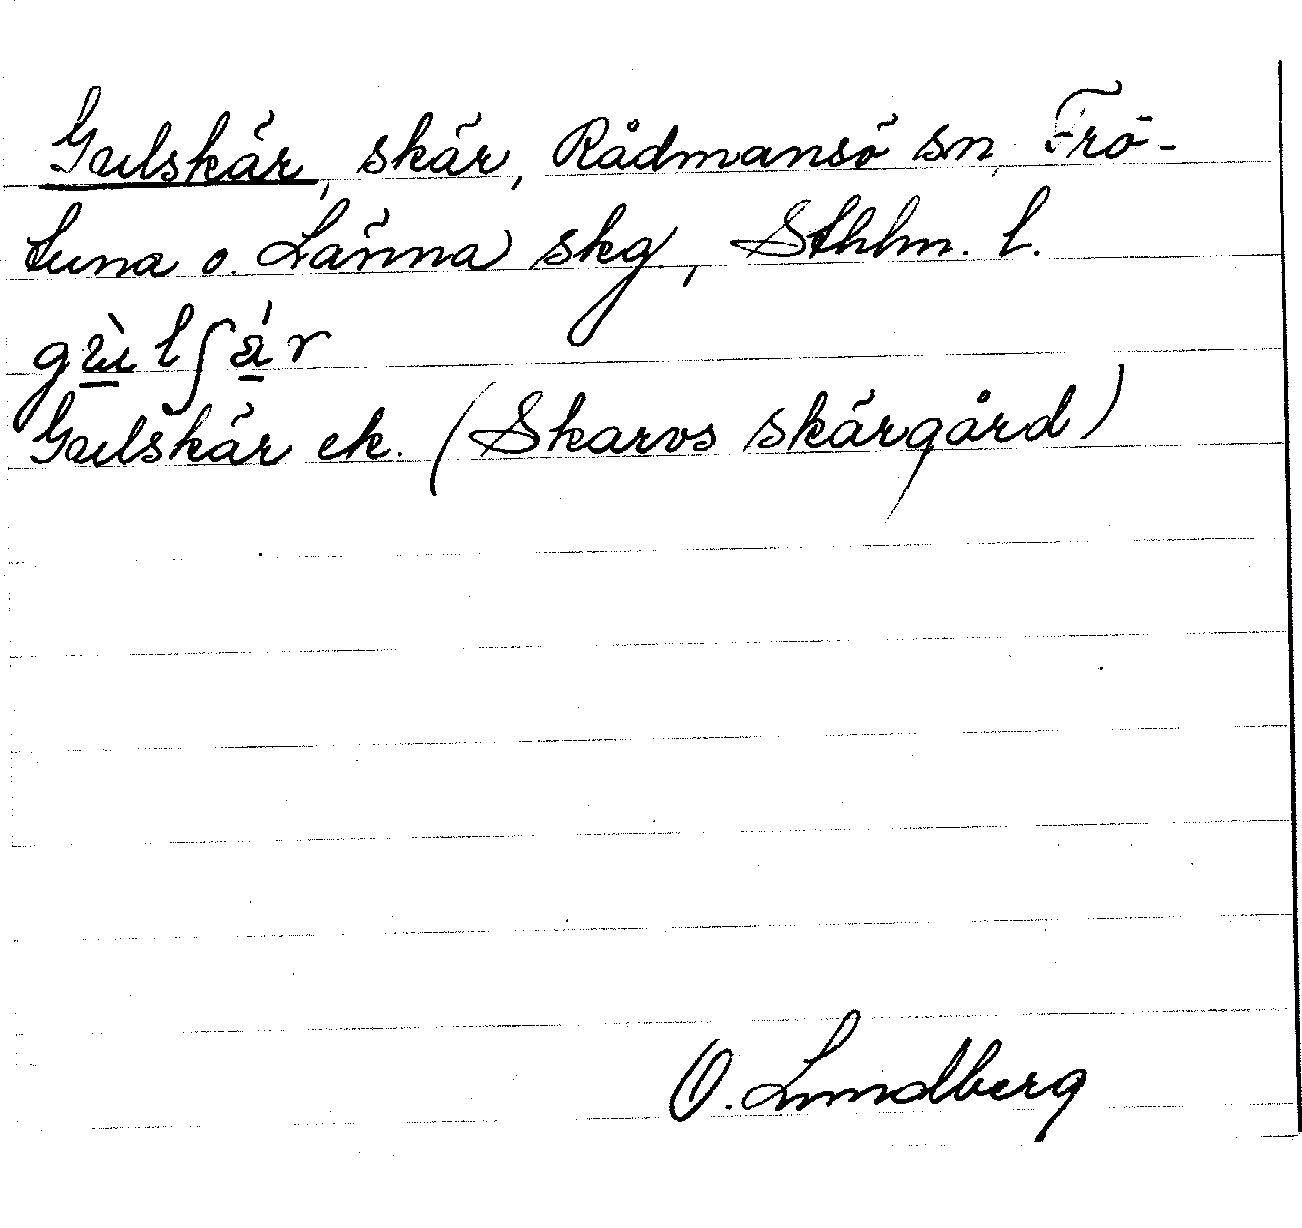 Gulskär, skär, Rådmansö sn, Frö-
tuna o. Länna skg, Sthlm. l.
gùlʃä́r
Gulskär ek. (Skarvs skärgård)
O. Lundberg